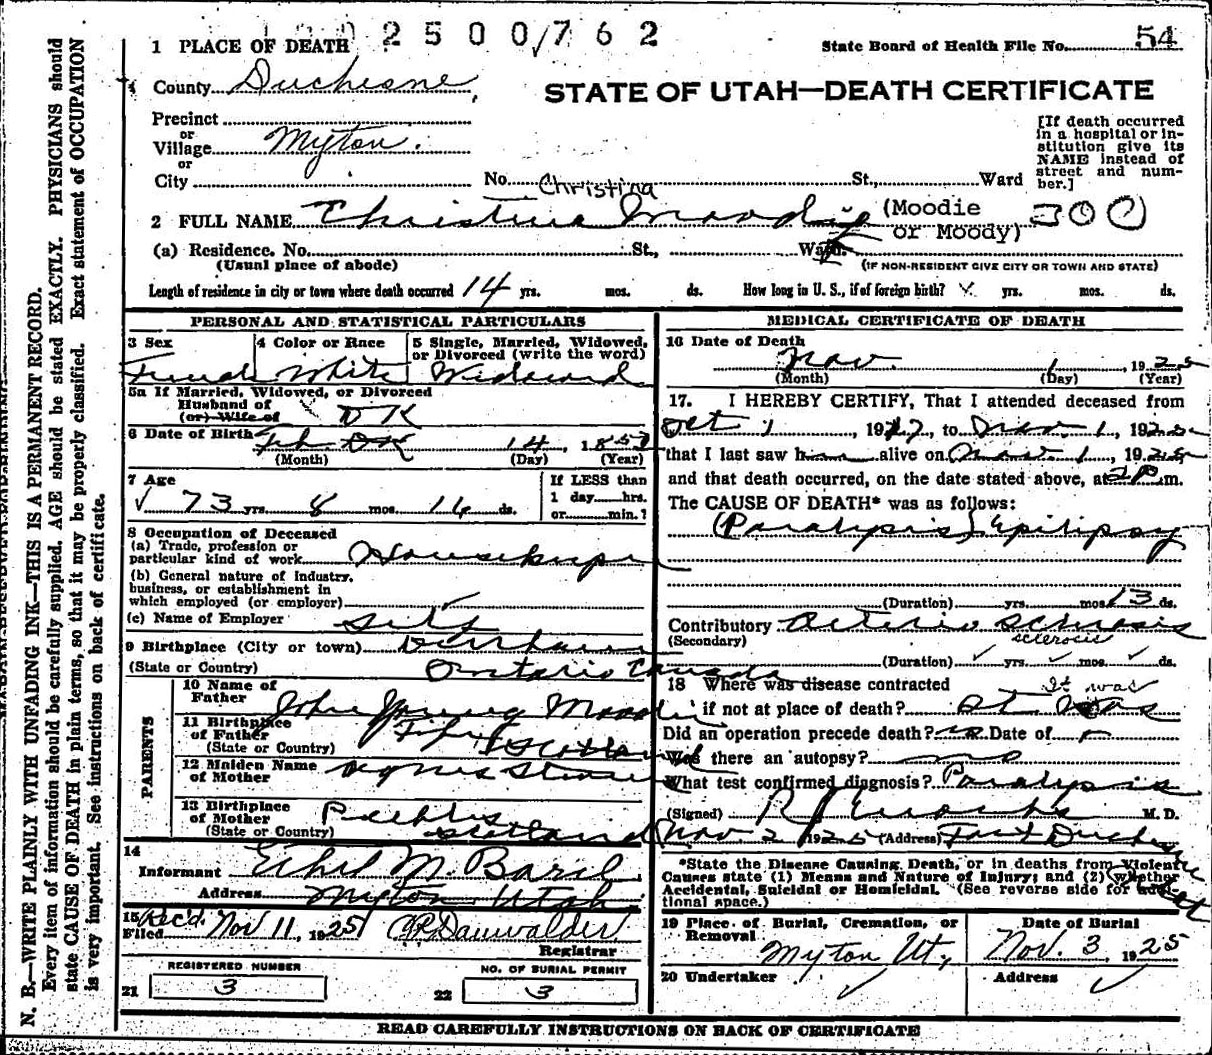 2500/762
1 PLACE OF DEATH
State Board of Health File No. 54
County Duchesne
STATE OF UTAH—DEATH CERTIFICATE
Precinct
or
Village Myton.
or
City No. St., Ward
[If death occurred
in a hospital or in-
stitution give its
NAME instead of
street and num-
ber.]
Christina
2 FULL NAME Christina Moodie (Moodie
or Moody) 300
(a) Residence. No. St., Ward.
(Usual place of abode)
(IF NON-RESIDENT GIVE CITY OR TOWN AND STATE)
Length of residence in city or town where death occurred 14 yrs. mos. ds. How long in U. S., if of foreign birth? yrs. mos. ds.
PERSONAL AND STATISTICAL PARTICULARS
3 Sex
4 Color or Race
5 Single, Married, Widowed,
or Divorced (write the word)
Female White Widowed
5a If Married, Widowed, or Divorced
Husband of
(or) Wife of DK
6 Date of Birth Feb. DK 14, 185
(Month) (Day) (Year)
7 Age
73 yrs. 8 mos. 16 ds.
If LESS than
1 day hrs.
or min.?
8 Occupation of Deceased
(a) Trade, profession or
particular kind of work Housekeeper
(b) General nature of industry,
business, or establishment in
which employed (or employer)
(c) Name of Employer Self
9 Birthplace (City or town) Durham
(State or Country) Ontario Canada
PARENTS
10 Name of
Father John Young Moodie
11 Birthplace
of Father
(State or Country) Scotland
12 Maiden Name
of Mother Agnes
13 Birthplace
of Mother
(State or Country) Peebles
Scotland
14
Informant Ethel M. Baril
Address Myton Utah
15 Rec'd.
Filed Nov 11, 1925 Dauwalder
Registrar
REGISTERED NUMBER
21 3
NO. OF BURIAL PERMIT
22 3
MEDICAL CERTIFICATE OF DEATH
16 Date of Death
Nov. 1, 1925
(Month) (Day) (Year)
17. I HEREBY CERTIFY, That I attended deceased from
Oct 1, 19 , to Nov. 1, 1925
that I last saw h alive on Nov. 1, 1925
and that death occurred, on the date stated above, at 2 P.m.
The CAUSE OF DEATH* was as follows:
(Paralysis) Epilipsy
(Duration) yrs. mos. 13 ds.
Contributory Arterio Schrosis
(Secondary) sclerosis
(Duration) yrs. mos. ds.
18 Where was disease contracted It was
if not at place of death?
Did an operation precede death? Date of
Was there an autopsy? no
What test confirmed diagnosis? Paralysis
(Signed) R J Enochs M. D.
Nov 2, 1925 (Address) Fort Duchesne
*State the Disease Causing Death, or in deaths from Violent
Causes state (1) Means and Nature of Injury; and (2) whether
Accidental, Suicidal or Homicidal. (See reverse side for addi-
tional space.)
19 Place of Burial, Cremation, or
Removal
Myton Ut,
Date of Burial
Nov. 3, 1925
20 Undertaker
Address
READ CAREFULLY INSTRUCTIONS ON BACK OF CERTIFICATE
N. B.—WRITE PLAINLY WITH UNFADING INK—THIS IS A PERMANENT RECORD.
Every item of information should be carefully supplied. AGE should be stated EXACTLY. PHYSICIANS should
state CAUSE OF DEATH in plain terms, so that it may be properly classified. Exact statement of OCCUPATION
is very important. See instructions on back of certificate.